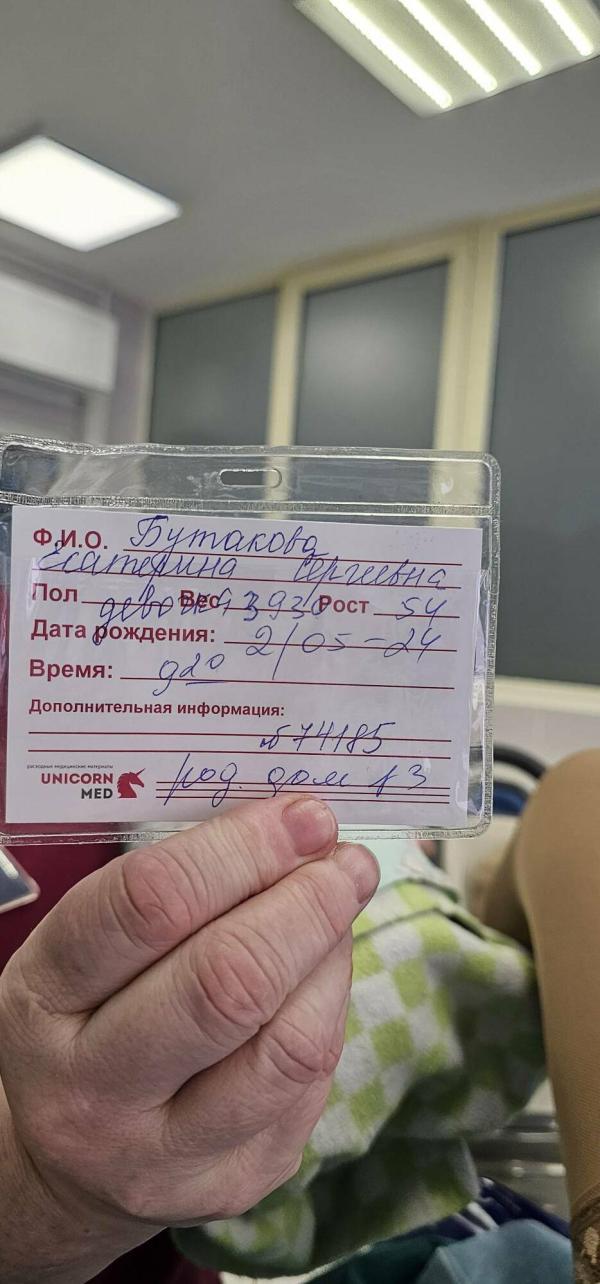 Ф.И.О. Бутакова
Екатерина Сергеевна
Пол девочка Вес 3930 Рост 54
Дата рождения: 2/05-24
Время: 9 20
Дополнительная информация:
№ 74185
расходные медицинские материалы
UNICORN
MED
род. дом 13